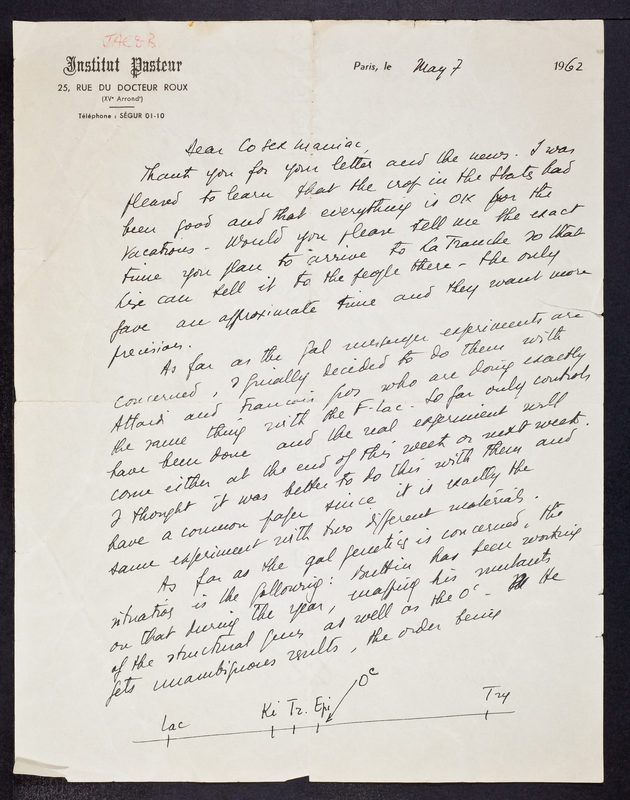 JACOB
Institut Pasteur
25, RUE DU DOCTEUR ROUX
(XVe Arrondt)
Téléphone : SÉGUR 01-10
Paris, le May 7 1962
Dear Cosexmaniac,
Thank you for your letter and the news. I was
pleased to learn that the crop in the States had
been good and that everything is OK for the
vacations - Would you please tell me the exact
time you plan to arrive to La Tranche so that
Lise can tell it to the people there - She only
gave an approximate time and they want more
precision.
As far as the gal messenger experiments are
concerned, I finally decided to do them with
Attardi and Francois Gros who are doing exactly
the same thing with the F-Lac. So far only controls
have been done and the real experiment will
come either at the end of this week or next week.
I thought it was better to do this with them and
have a common paper since it is exactly the
same experiment with two different materials.
As far as the gal genetics is concerned, the
situation is the following: Buttin has been working
on that during the year, mapping his mutants
of the structural genes as well as the Oc - He
gets unambiguous results, the order being
Lac Ki Tr. Epi Oc Try